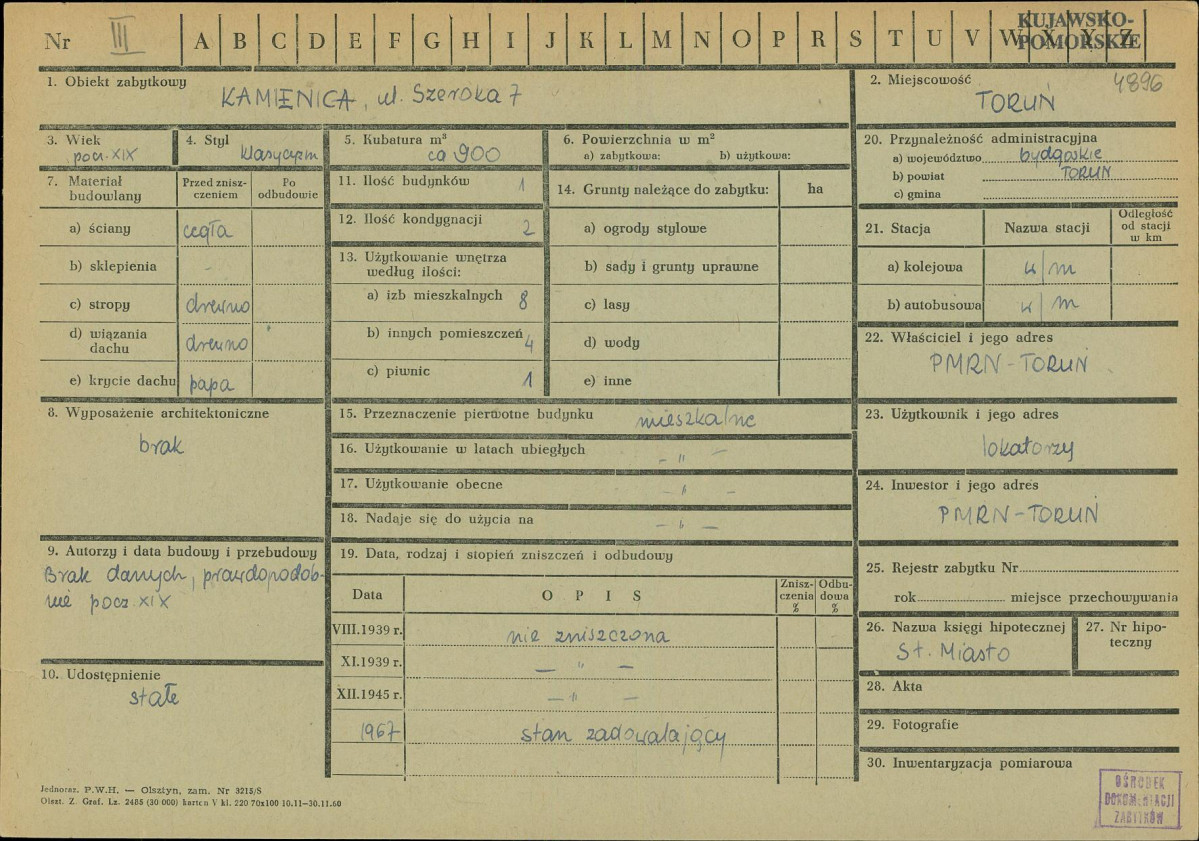 Nr III A B C D E F G H I J K L M N O P R S T U V W X Y Z
KUJAWSKO-
POMORSKIE
1. Obiekt zabytkowy
KAMIENICA, ul. Szeroka 7
2. Miejscowość 4896
TORUŃ
3. Wiek
pocz. XIX
4. Styl
klasycyzm
5. Kubatura m³
ca 900
6. Powierzchnia w m²
a) zabytkowa: b) użytkowa:
7. Materiał
budowlany
Przed znisz-
czeniem
Po
odbudowie
a) ściany cegła
b) sklepienia -
c) stropy drewno
d) wiązania
dachu drewno
e) krycie dachu papa
8. Wyposażenie architektoniczne
brak
9. Autorzy i data budowy i przebudowy
Brak danych, prawdopodob-
nie pocz. XIX
10. Udostępnienie
stałe
11. Ilość budynków 1
12. Ilość kondygnacji 2
13. Użytkowanie wnętrza
według ilości:
a) izb mieszkalnych 8
b) innych pomieszczeń 4
c) piwnic 1
14. Grunty należące do zabytku: ha
a) ogrody stylowe
b) sady i grunty uprawne
c) lasy
d) wody
e) inne
15. Przeznaczenie pierwotne budynku mieszkalne
16. Użytkowanie w latach ubiegłych - " -
17. Użytkowanie obecne - " -
18. Nadaje się do użycia na - " -
19. Data, rodzaj i stopień zniszczeń i odbudowy
Data OPIS
Znisz-
czenia
%
Odbu-
dowa
%
VIII.1939 r. nie zniszczona
XI.1939 r. - " -
XII.1945 r. - " -
1967 stan zadowalający
20. Przynależność administracyjna
a) województwo bydgoskie
b) powiat TORUŃ
c) gmina
21. Stacja Nazwa stacji
Odległość
od stacji
w km
a) kolejowa w/m
b) autobusowa w/m
22. Właściciel i jego adres
PMRN-TORUŃ
23. Użytkownik i jego adres
lokatorzy
24. Inwestor i jego adres
PMRN-TORUŃ
25. Rejestr zabytku Nr
rok miejsce przechowywania
26. Nazwa księgi hipotecznej
St. Miasto
27. Nr hipo-
teczny
28. Akta
29. Fotografie
30. Inwentaryzacja pomiarowa
Jednoraz. P.W.H. — Olsztyn, zam. Nr 3215/S
Olszt. Z. Graf. Lz. 2485 (30 000) karton V kl. 220 70x100 10.11-30.11.60
OŚRODEK
DOKUMENTACJI
ZABYTKÓW